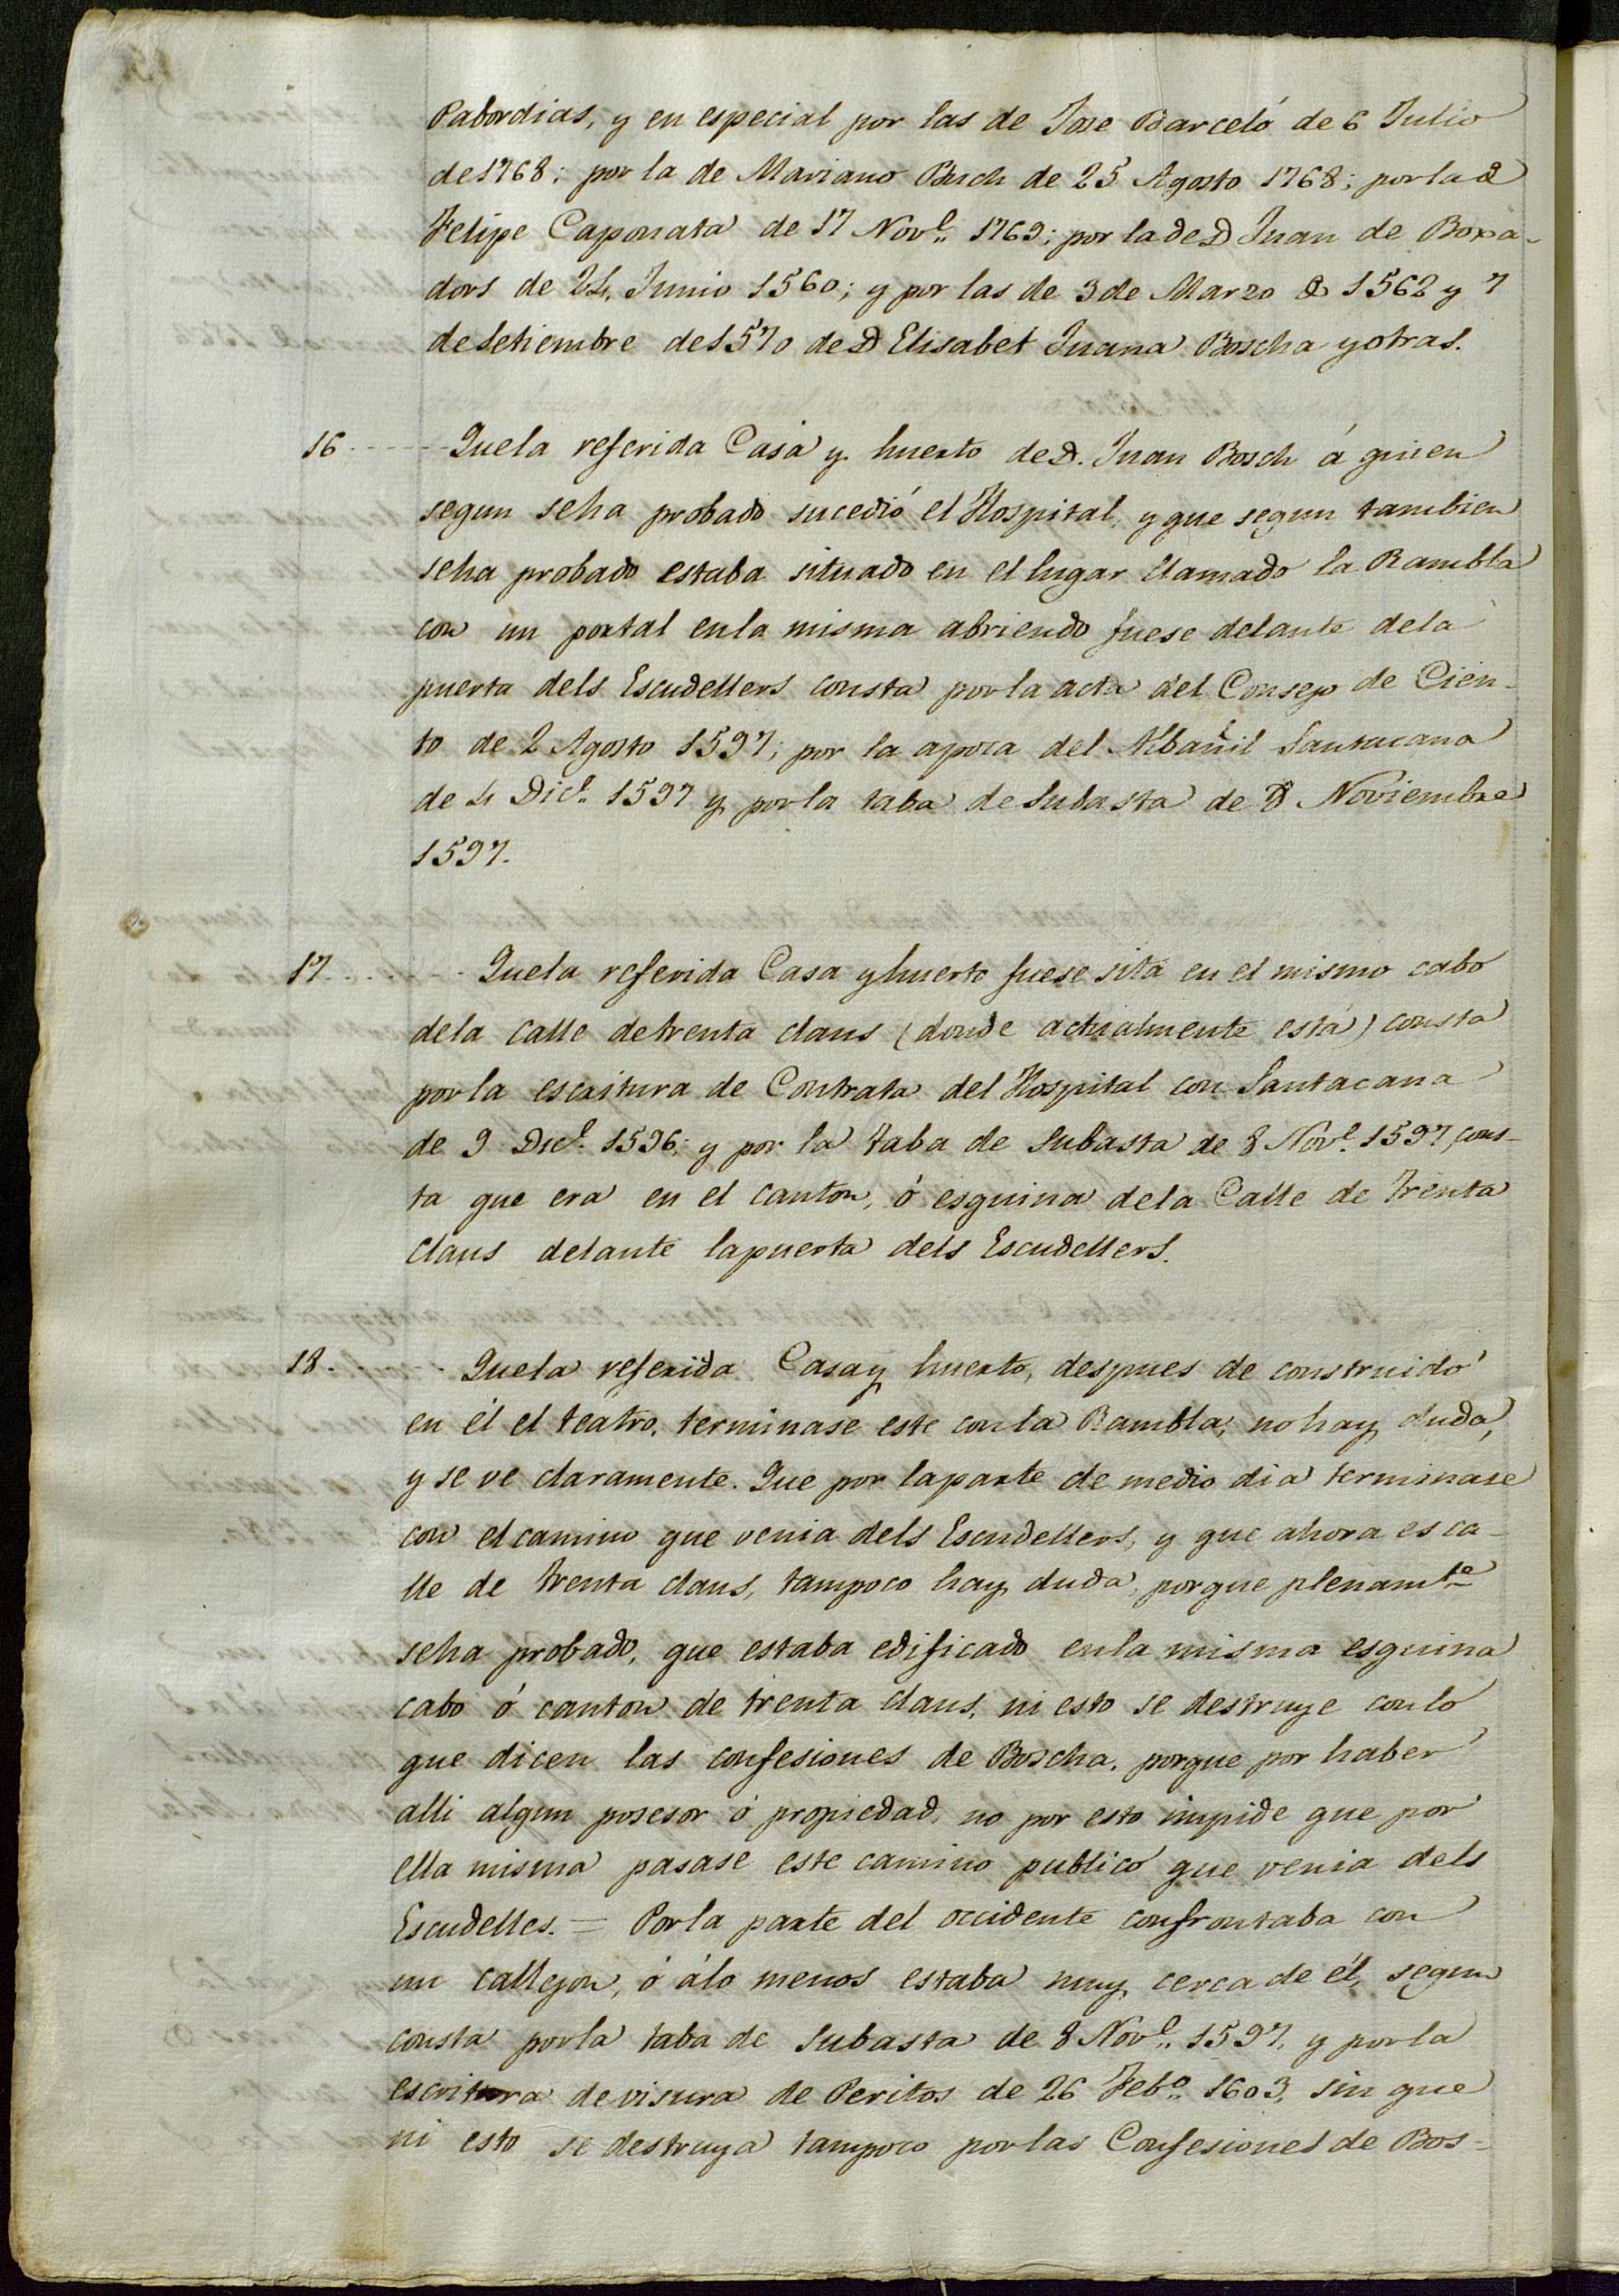 Pabordias, y en especial por las de Jose Barceló de 6 Julio
de 1768; por la de Mariano Bosch de 25 Agosto 1768; por la de
Felipe Caponata de 17 Nov.e 1769; por la de D Juan de Boxa-
dors de 24, Junio 1560; y por las de 3 de Marzo de 1562 y 7
de Setiembre de 1570 de D Elisabet Juana Boscha y otras.
16 - - - - - Que la referida Casa y huerto de D. Juan Bosch á quien
segun se ha probado sucedió el Hospital, y que segun tambien
se ha probado estaba situado en el lugar llamado la Rambla
con un portal en la misma abriendo fuese delante de la
puerta dels Escudellers consta por la acta del Consejo de Cien-
to de 2 Agosto 1597; por la apoca del Albañil Santacana
de 4 Dic.e 1597 y por la taba de Subasta de 8 Noviembre
1597.
17. - - - - - Que la referida Casa y huerto fuese sita en el mismo cabo
de la calle de trenta claus (donde actualmente está) consta
por la escritura de Contrata del Hospital con Santacana
de 9 Dic.e 1596; y por la taba de Subasta de 8 Nov.e 1597, cons-
ta que era en el canton, ó esquina de la Calle de Trenta
claus delante la puerta dels Escudellers.
18. - - - Que la referida Casa y huerto, despues de construido
en él el teatro, terminase este con la Rambla, no hay duda,
y se ve claramente. Que por la parte de medio dia terminase
con el camino que venia dels Escudellers, y que ahora es ca-
lle de trenta claus, tampoco hay duda, porque plenam.te
se ha probado, que estaba edificado en la misma esquina
cabo ó canton de trenta claus, ni esto se destruye con lo
que dicen las confesiones de Boscha, porque por haber
alli algun posesor ó propiedad, no por esto impide que por
ella misma pasase este camino publico que venia dels
Escudelles. = Por la parte del occidente confrontaba con
un callejon, ó á lo menos estaba muy cerca de él, segun
consta por la taba de Subasta de 8 Nov.e 1597, y por la
escritura de visura de Peritos de 26 Feb.o 1603, sin que
ni esto se destruya tampoco por las Confesiones de Bos-